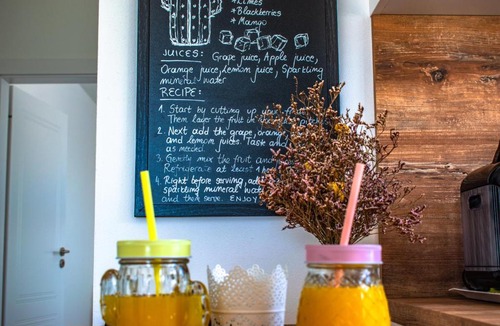 *Limes
*Blackberries
*Mango
JUICES: Grape juice, Apple juice,
Orange juice, Lemon juice, Sparkling
mineral water
RECIPE:
1. Start by cutting up your fruit
Then layer the fruit in
2. Next add the grape, orange,
and lemon juices. Taste and
as needed.
3. Gently mix the fruit and
Refrigerate at least 1
4. Right before serving, add
sparkling mineral water
and then serve. ENJOY